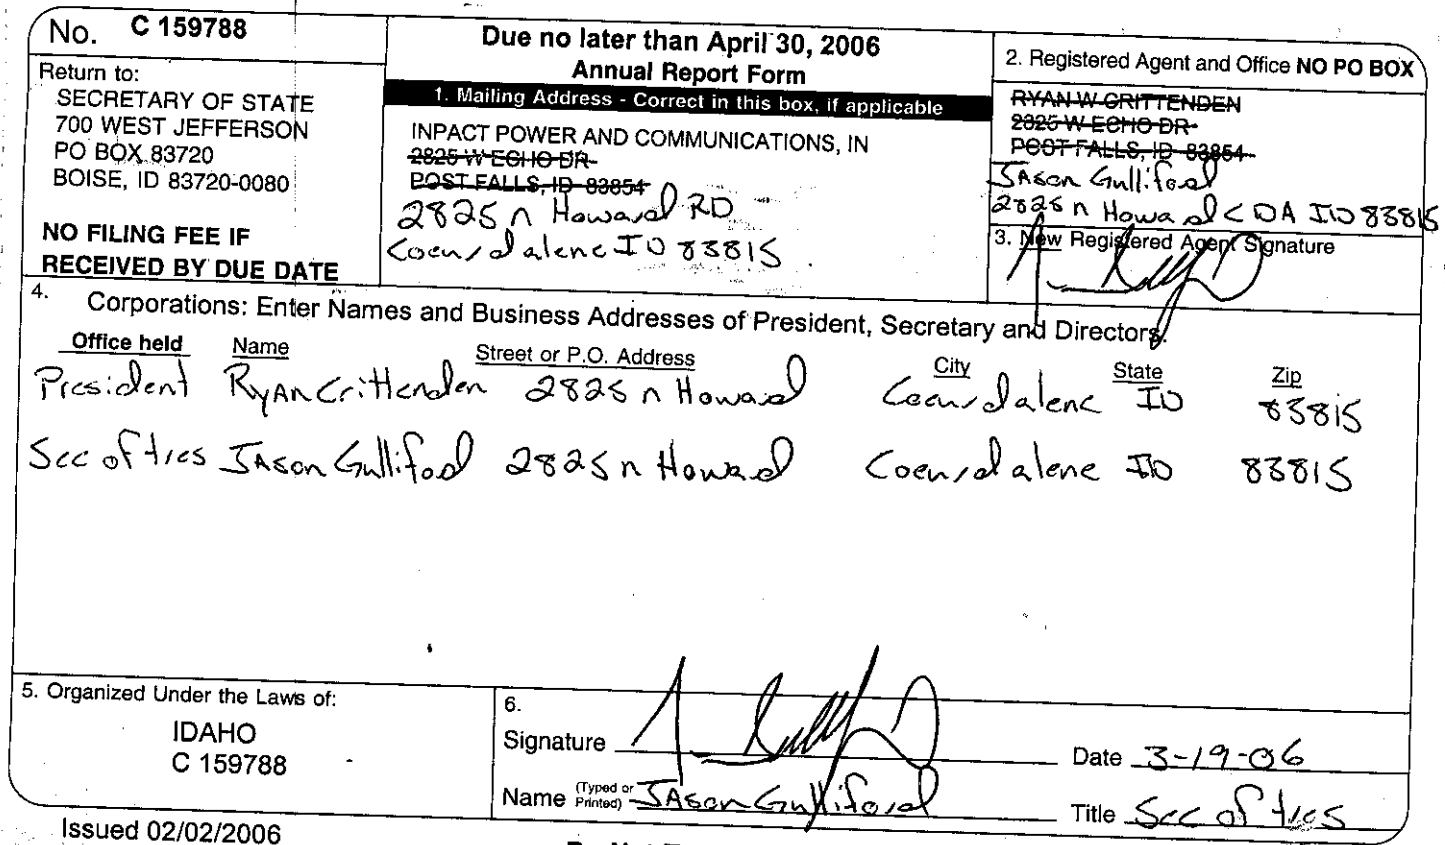 No. C 159788
Return to:
SECRETARY OF STATE
700 WEST JEFFERSON
PO BOX 83720
BOISE, ID 83720-0080
NO FILING FEE IF
RECEIVED BY DUE DATE
Due no later than April 30, 2006
Annual Report Form
1. Mailing Address - Correct in this box, if applicable
INPACT POWER AND COMMUNICATIONS, IN
2825 W ECHO DR
POST FALLS, ID 83854
2825 n Howard RD
Coeur d alene ID 83815
2. Registered Agent and Office NO PO BOX
RYAN W CRITTENDEN
2825 W ECHO DR
POST FALLS, ID 83854
JASon Gulliford
2825 n Howard CDA ID 83815
3. New Registered Agent Signature
4. Corporations: Enter Names and Business Addresses of President, Secretary and Directors.
Office held Name Street or P.O. Address City State Zip
President RyAn Crittenden 2825 n Howard Coeur d alene ID 83815
Sec of tres JASon Gulliford 2825 n Howard Coeur d alene ID 83815
5. Organized Under the Laws of:
IDAHO
C 159788
6.
Signature
Date 3-19-06
Name (Typed or Printed) JASon Gulliford
Title Sec of tres
Issued 02/02/2006